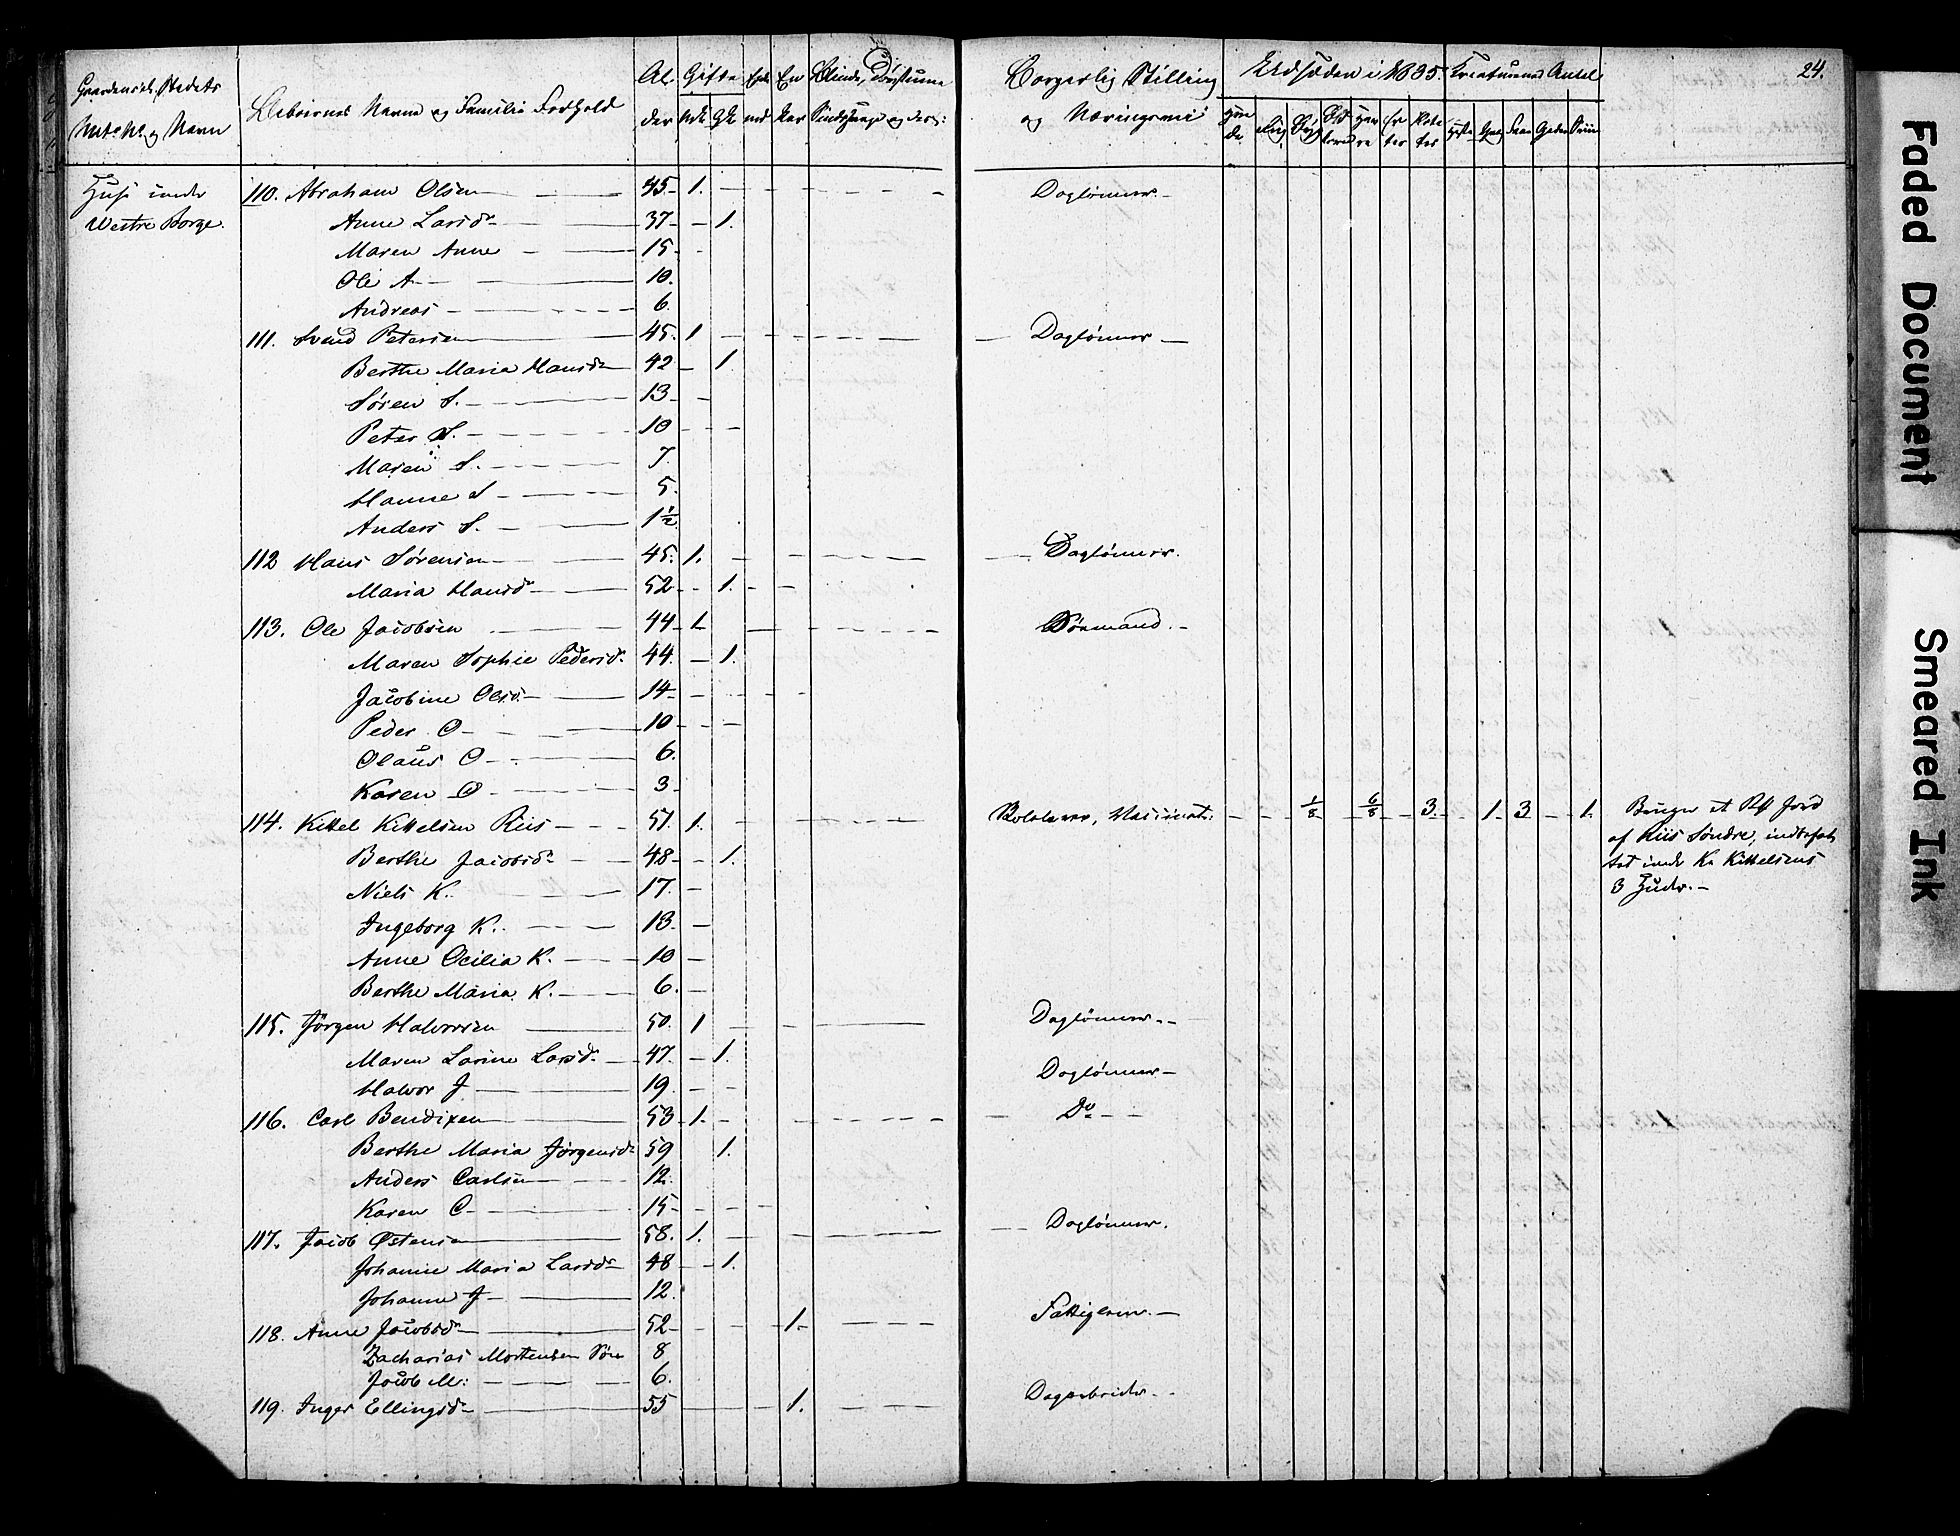 24.
Gaardens, Stedets Matr. No. og Navn
Beboernes Navne og Familie Forhold
Al- der
Gifte
Blinde, Døvstumme
Sindssvage og desl.
Borgerlig Stilling
og Næringsvei
Udsæden i 1835
Kreaturernes Antal
Huse under
Westre Borge.
110. Abraham Olsen 45 1. Daglønner
Anne Larsdr 37 1.
Maren Anne 15
Ole A 10.
Andreas 6.
111. Svend Petersen 45. 1 Daglønner
Berthe Maria Hansdr 42 1.
Søren S. 13
Peter S. 10
Maren S. 7.
Hanne S 5.
Anders S. 1 1/2
112 Hans Sørensen 45. 1. Daglønner.
Maria Hansd 52 1.
113. Ole Jacobsen 44 1 Sømand.
Maren Sophie Pedersd. 44. 1.
Jacobine Olsd. 14
Peder O 10
Olaus O 6.
Karen O 3
114. Kittel Kittelsen Riis 51. 1. 1/8 6/8 3. 1 3 1.
Berthe Jacobsdr 48 1.
Niels K. 17.
Ingeborg K. 13.
Anne Cecilia K. 10
Berthe Maria K. 6.
Bruger et Jord
af Riis Søndre, indbefat
tet under Kr Kittelsens
3 Huder.
115. Jørgen Halvorsen 50. 1 Daglønner
Maren Larine Larsdr 47. 1.
Halvor J 19. Daglønner
116. Carl Bendixen 53 1. Do
Berthe Maria Jørgensdr 59 1.
Anders Carlsen 12.
Karen C 15
117. Jacob Østensen 58. 1. Daglønner.
Johanne Maria Larsdr 48 1.
Johanne J 12.
118. Anne Jacobsdr 52 1. Fattiglem.
Zacharias Mortensen Søn 8
Jacob M: 6.
119. Inger Ellingsdr 55 1. Dagarbeider.
Faded Document
Smeared Ink